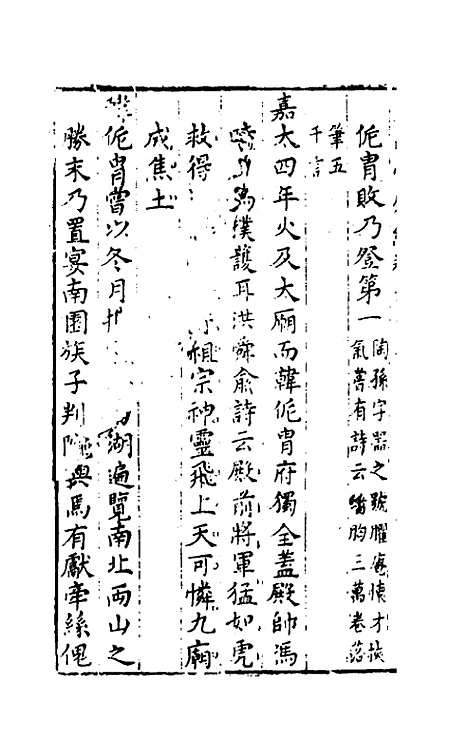 侂胄敗乃登第一陶孫字器之號臞庵懷才
氣嘗有詩云胸三萬卷落
筆五
千言
嘉太四年火及太廟而韓侂胄府獨全蓋殿帥馮
為撲護耳洪舜俞詩云殿前將軍猛如虎
救得祖宗神靈飛上天可憐九廟
成焦土
侂胄嘗以冬月湖遍覽南北兩山之
勝末乃置宴南園族子判院與焉有獻牽絲傀